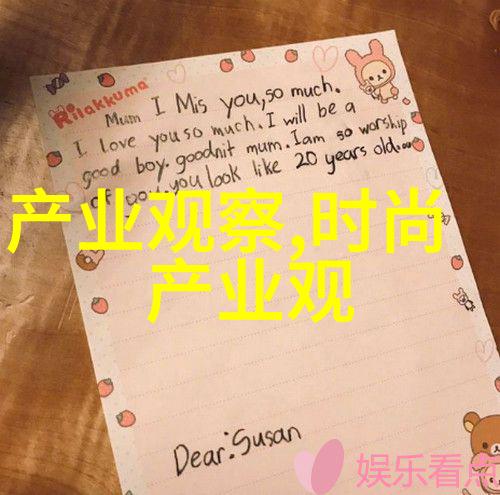 Rilakkuma
Mum I Mis you,so much.
I love you so much. I will be a
good boy. goodnit mum. Iam so worship
of you. you look like 20 years old....
产业观察,时尚
产业观
Dear:Susan
娱乐看点